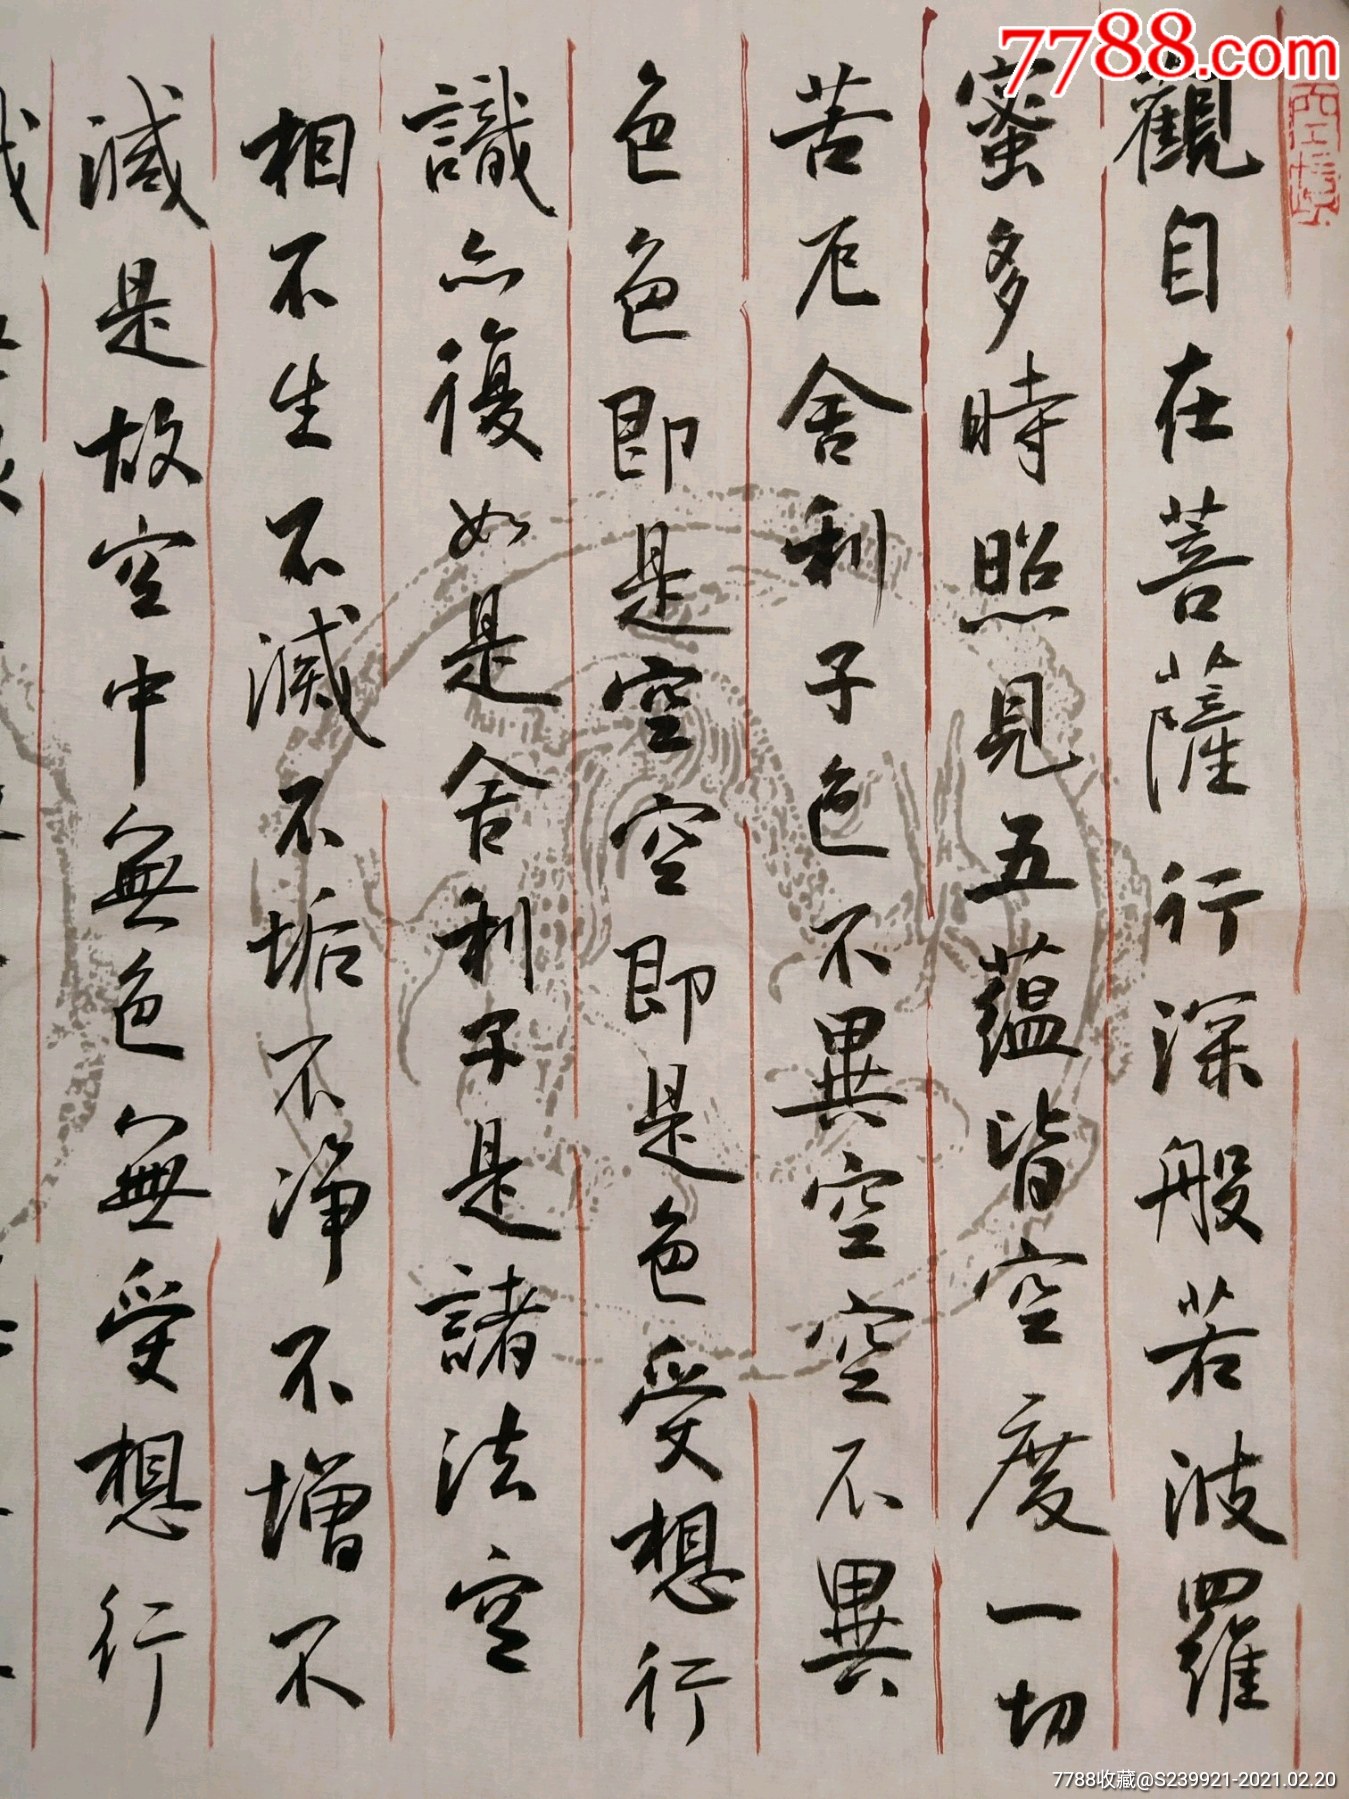 7788.com
觀自在菩薩行深般若波羅
蜜多時照見五蘊皆空度一切
苦厄舍利子色不異空空不異
色色即是空空即是色受想行
識亦復如是舍利子是諸法空
相不生不滅不垢不净不增不
滅是故空中無色無受想行
7788收藏@S239921-2021.02.20